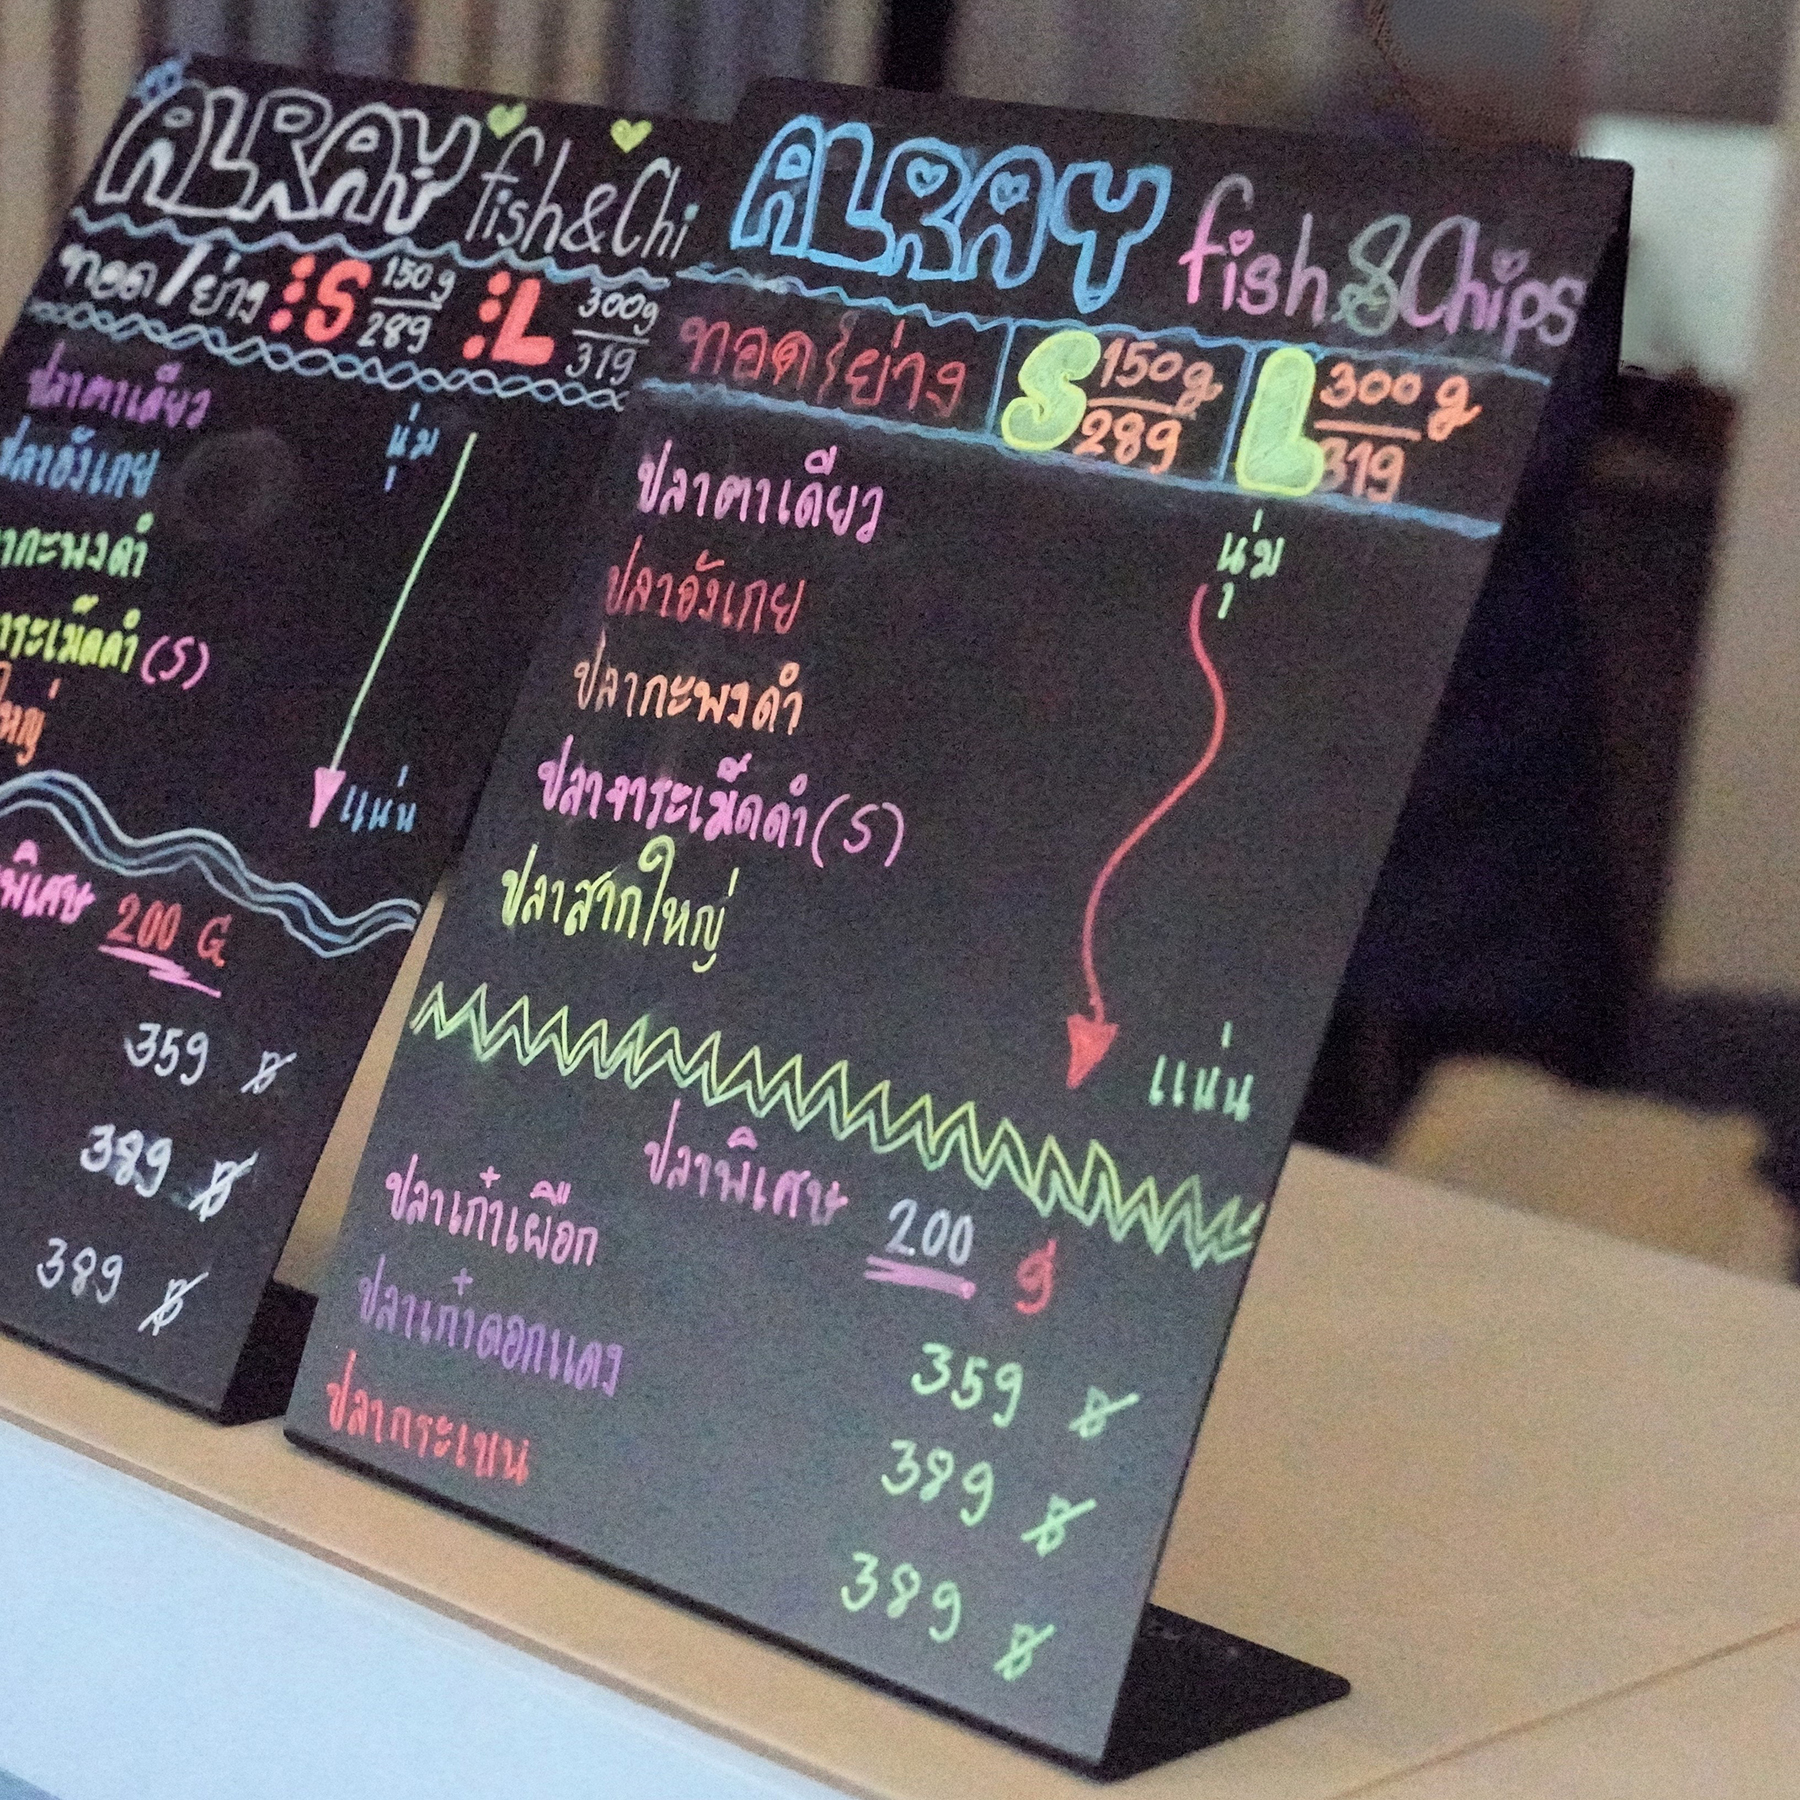 ALRAY fish&Chi
ทอด/ย่าง :S 150g 289 :L 300g 319
ปลาตาเดียว
นุ่ม
ปลาอังเกย
ากะพงดำ
าระเม็ดดำ (S)
ใหญ่
แน่น
พิเศษ 200 G
359 ฿
389 ฿
389 ฿
ALRAY fish&Chips
ทอด/ย่าง S 150g 289 L 300g 319
ปลาตาเดียว
นุ่ม
ปลาอังเกย
ปลากะพงดำ
ปลาจาระเม็ดดำ (S)
ปลาสากใหญ่
แน่น
ปลาพิเศษ 200 g
ปลาเก๋าเผือก 359 ฿
ปลาเก๋าดอกแดง 389 ฿
ปลากระเชน 389 ฿